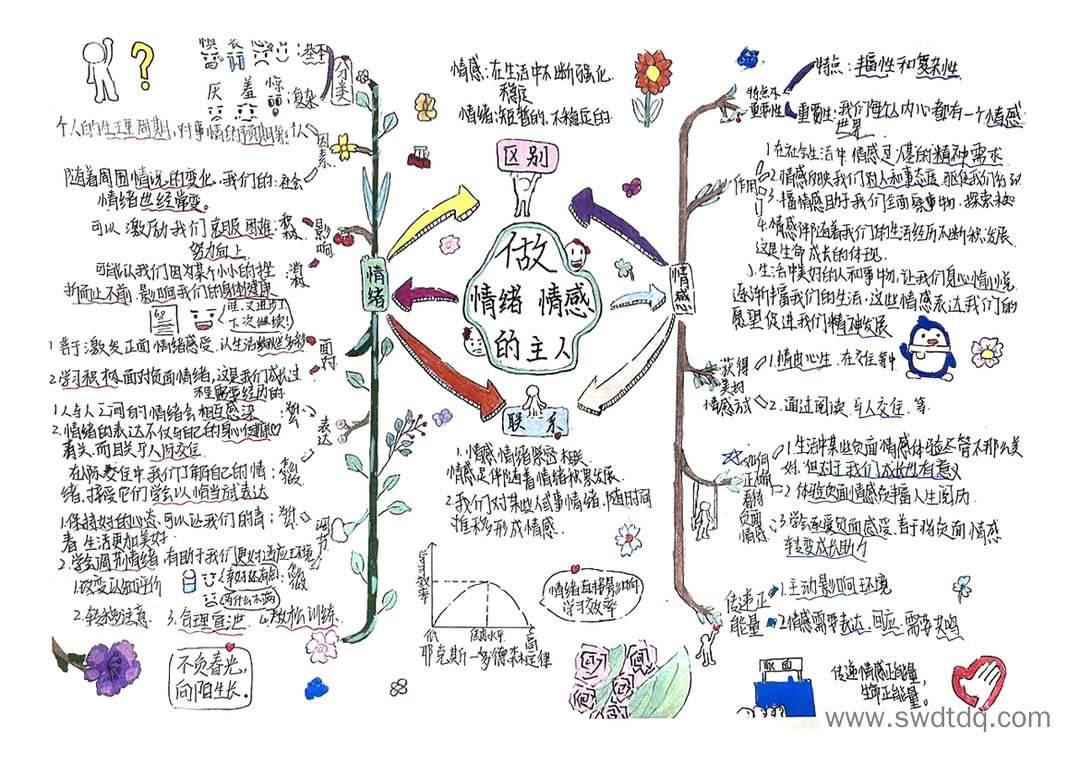 惧 哀
:基本
分类
厌 羞 惊
:复杂
个人的生理周期,对事情的预期等:个人
因素
随着周围情况的变化,我们的:社会
情绪也经常变。
可以激励我们克服困难:积极
努力向上
影响
可能让我们因为某个小小的挫:消极
折而止不前,影响我们的身体健康
哇,又进步了
下次继续!
情绪
1.善于激发正面情绪感受,
面对
2.学习积极面对负面情绪,这是我们成长过
程需要经历的
1.人与人之间的情绪会相互感染
2.情绪的表达不仅与自己的身心健康
有关,而且关乎人际交往
表达
在人际交往中我们了解自己的情
绪,接受它们学会以恰当方式表达
1.保持好的心态,可以让我们的青
春生活更加美好
调节
2.学会调节情绪,有助于我们更好适应环境
1.改变认知评价
2.转移注意
3.合理宣泄
4.放松训练
不负春光,
向阳生长。
情感:在生活中不断强化,
稳定
情绪:短暂的,不稳定的
区别
做
情绪 情感
的主人
联系
1.情感、情绪紧密相联
情感是伴随着情绪积累发展
2.我们对某些人或事情绪,随时间
推移形成情感
学习效率
低
焦虑水平
高
耶克斯—多德森定律
情绪直接影响
学习效率
情感
特点:丰富性和复杂性
特点和
重要性
重要性:我们每个人内心都有一个情感
世界
作用
1.在社会生活中情感是人基本的精神需求
2.情感反映我们对人和事态度,
3.丰富情感助于我们全面观察事物,探索未知
4.情感伴随着我们的生活经历不断积累发展
这是生命成长的体现
1.生活中美好的人和事物,让我们身心愉悦
逐渐丰富我们的生活,这些情感表达我们的
愿望促进我们精神发展
获得
美好
情感方式
1.情由心生,在交往中
2.通过阅读,与人交往,等
如何
正确
看待
负面
情感
1.生活中某些负面情感体验尽管不那么美
好,但对于我们成长也有意义
2.体验负面情感会丰富人生阅历
3.学会承受负面感受,善于将负面情感
转变成长助力
传递正
能量
1.主动影响环境
2.情感需要表达、回应、需要共鸣
传递情感正能量,
生命正能量。
www.swdtdq.com